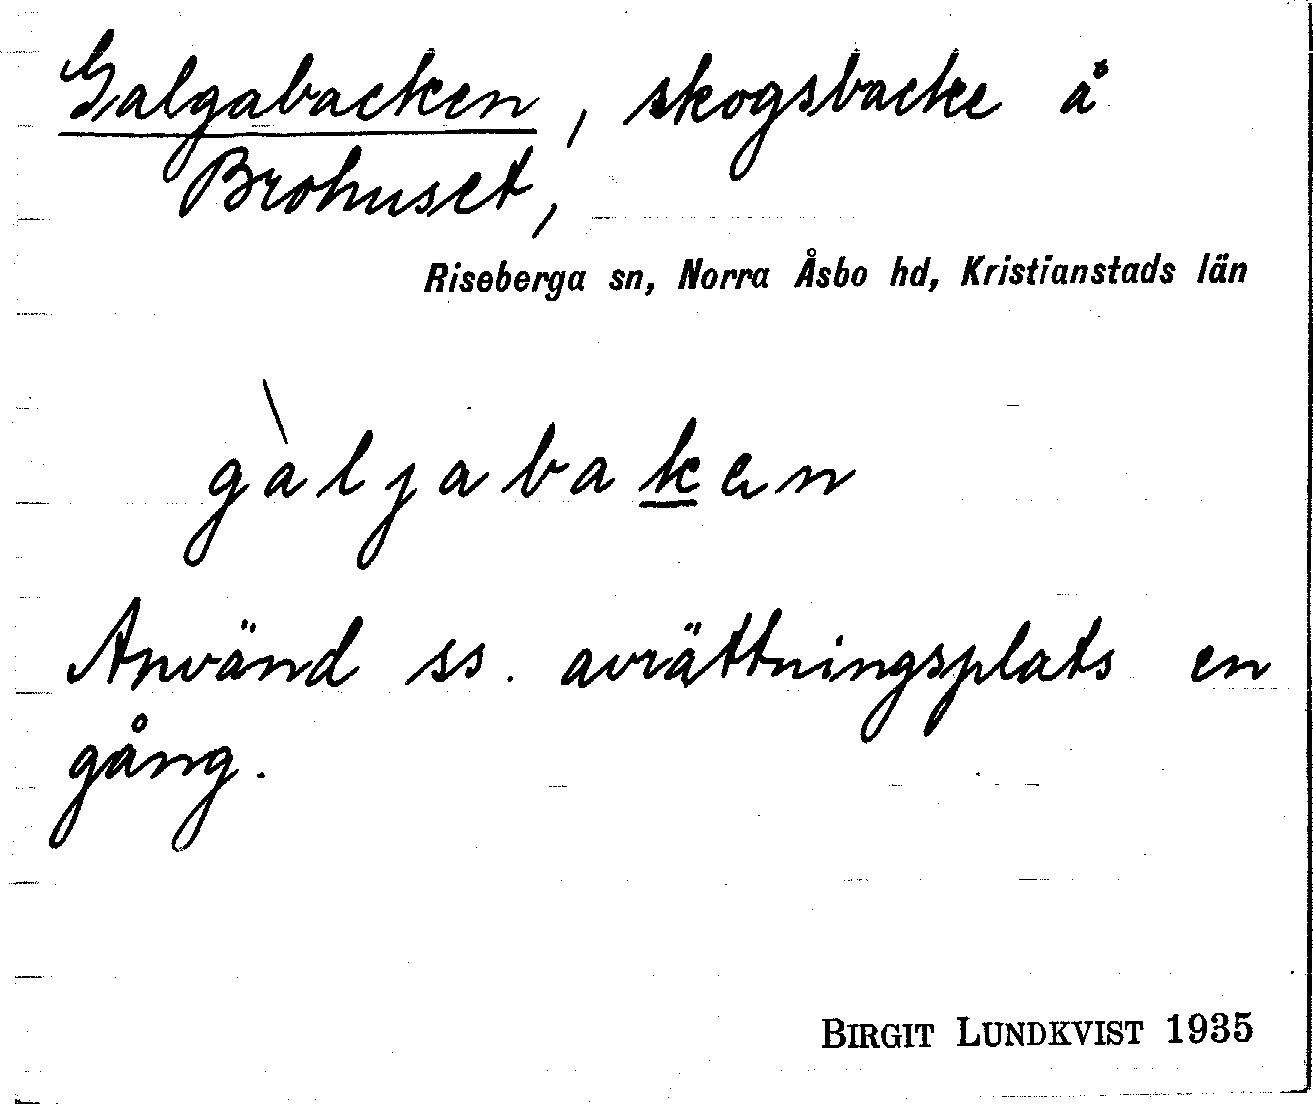 Galgabacken, skogsbacke å
Brohuset,
Riseberga sn, Norra Åsbo hd, Kristianstads län
gàljabaken
Använd ss. avrättningsplats en
gång.
BIRGIT LUNDKVIST 1935